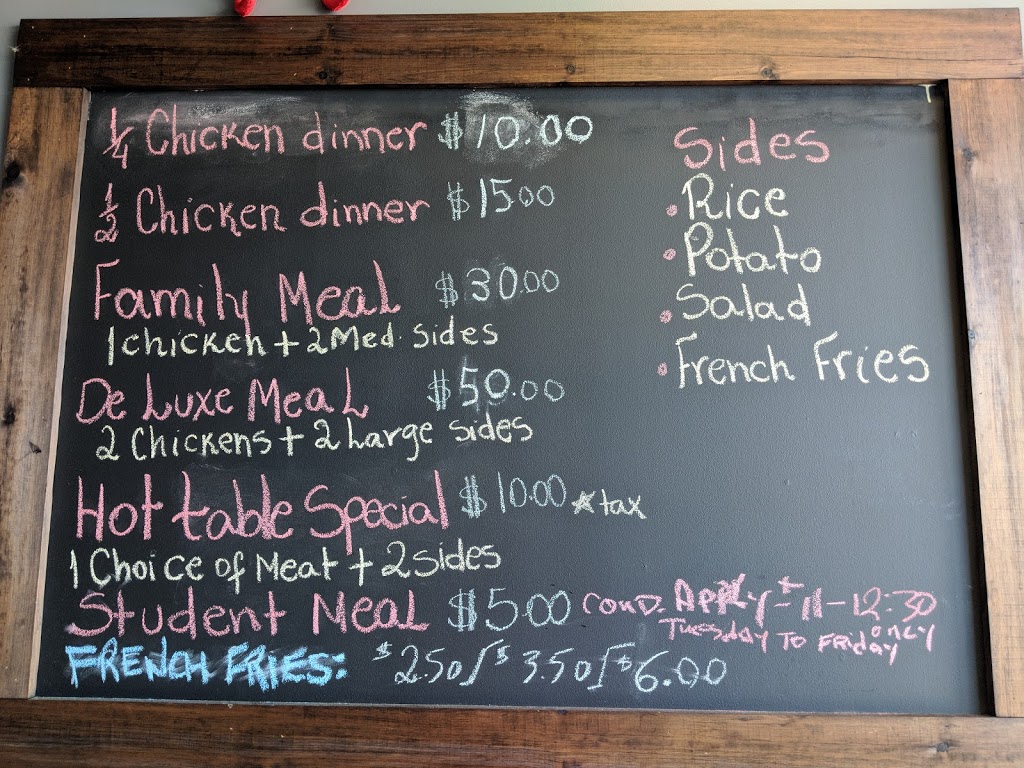 1/4 Chicken dinner $10.00
1/2 Chicken dinner $15.00
Family Meal $30.00
1 chicken + 2 Med. sides
De Luxe Meal $50.00
2 Chickens + 2 Large sides
Hot table Special $10.00 *tax
1 Choice of Meat + 2 sides
Student Meal $5.00 COND. APPLY - 11 - 12:30
TuesDay To FRiDay ONCY
FRENCH FRIES: $2.50/$3.50/$6.00
Sides
• Rice
• Potato
• Salad
• French Fries